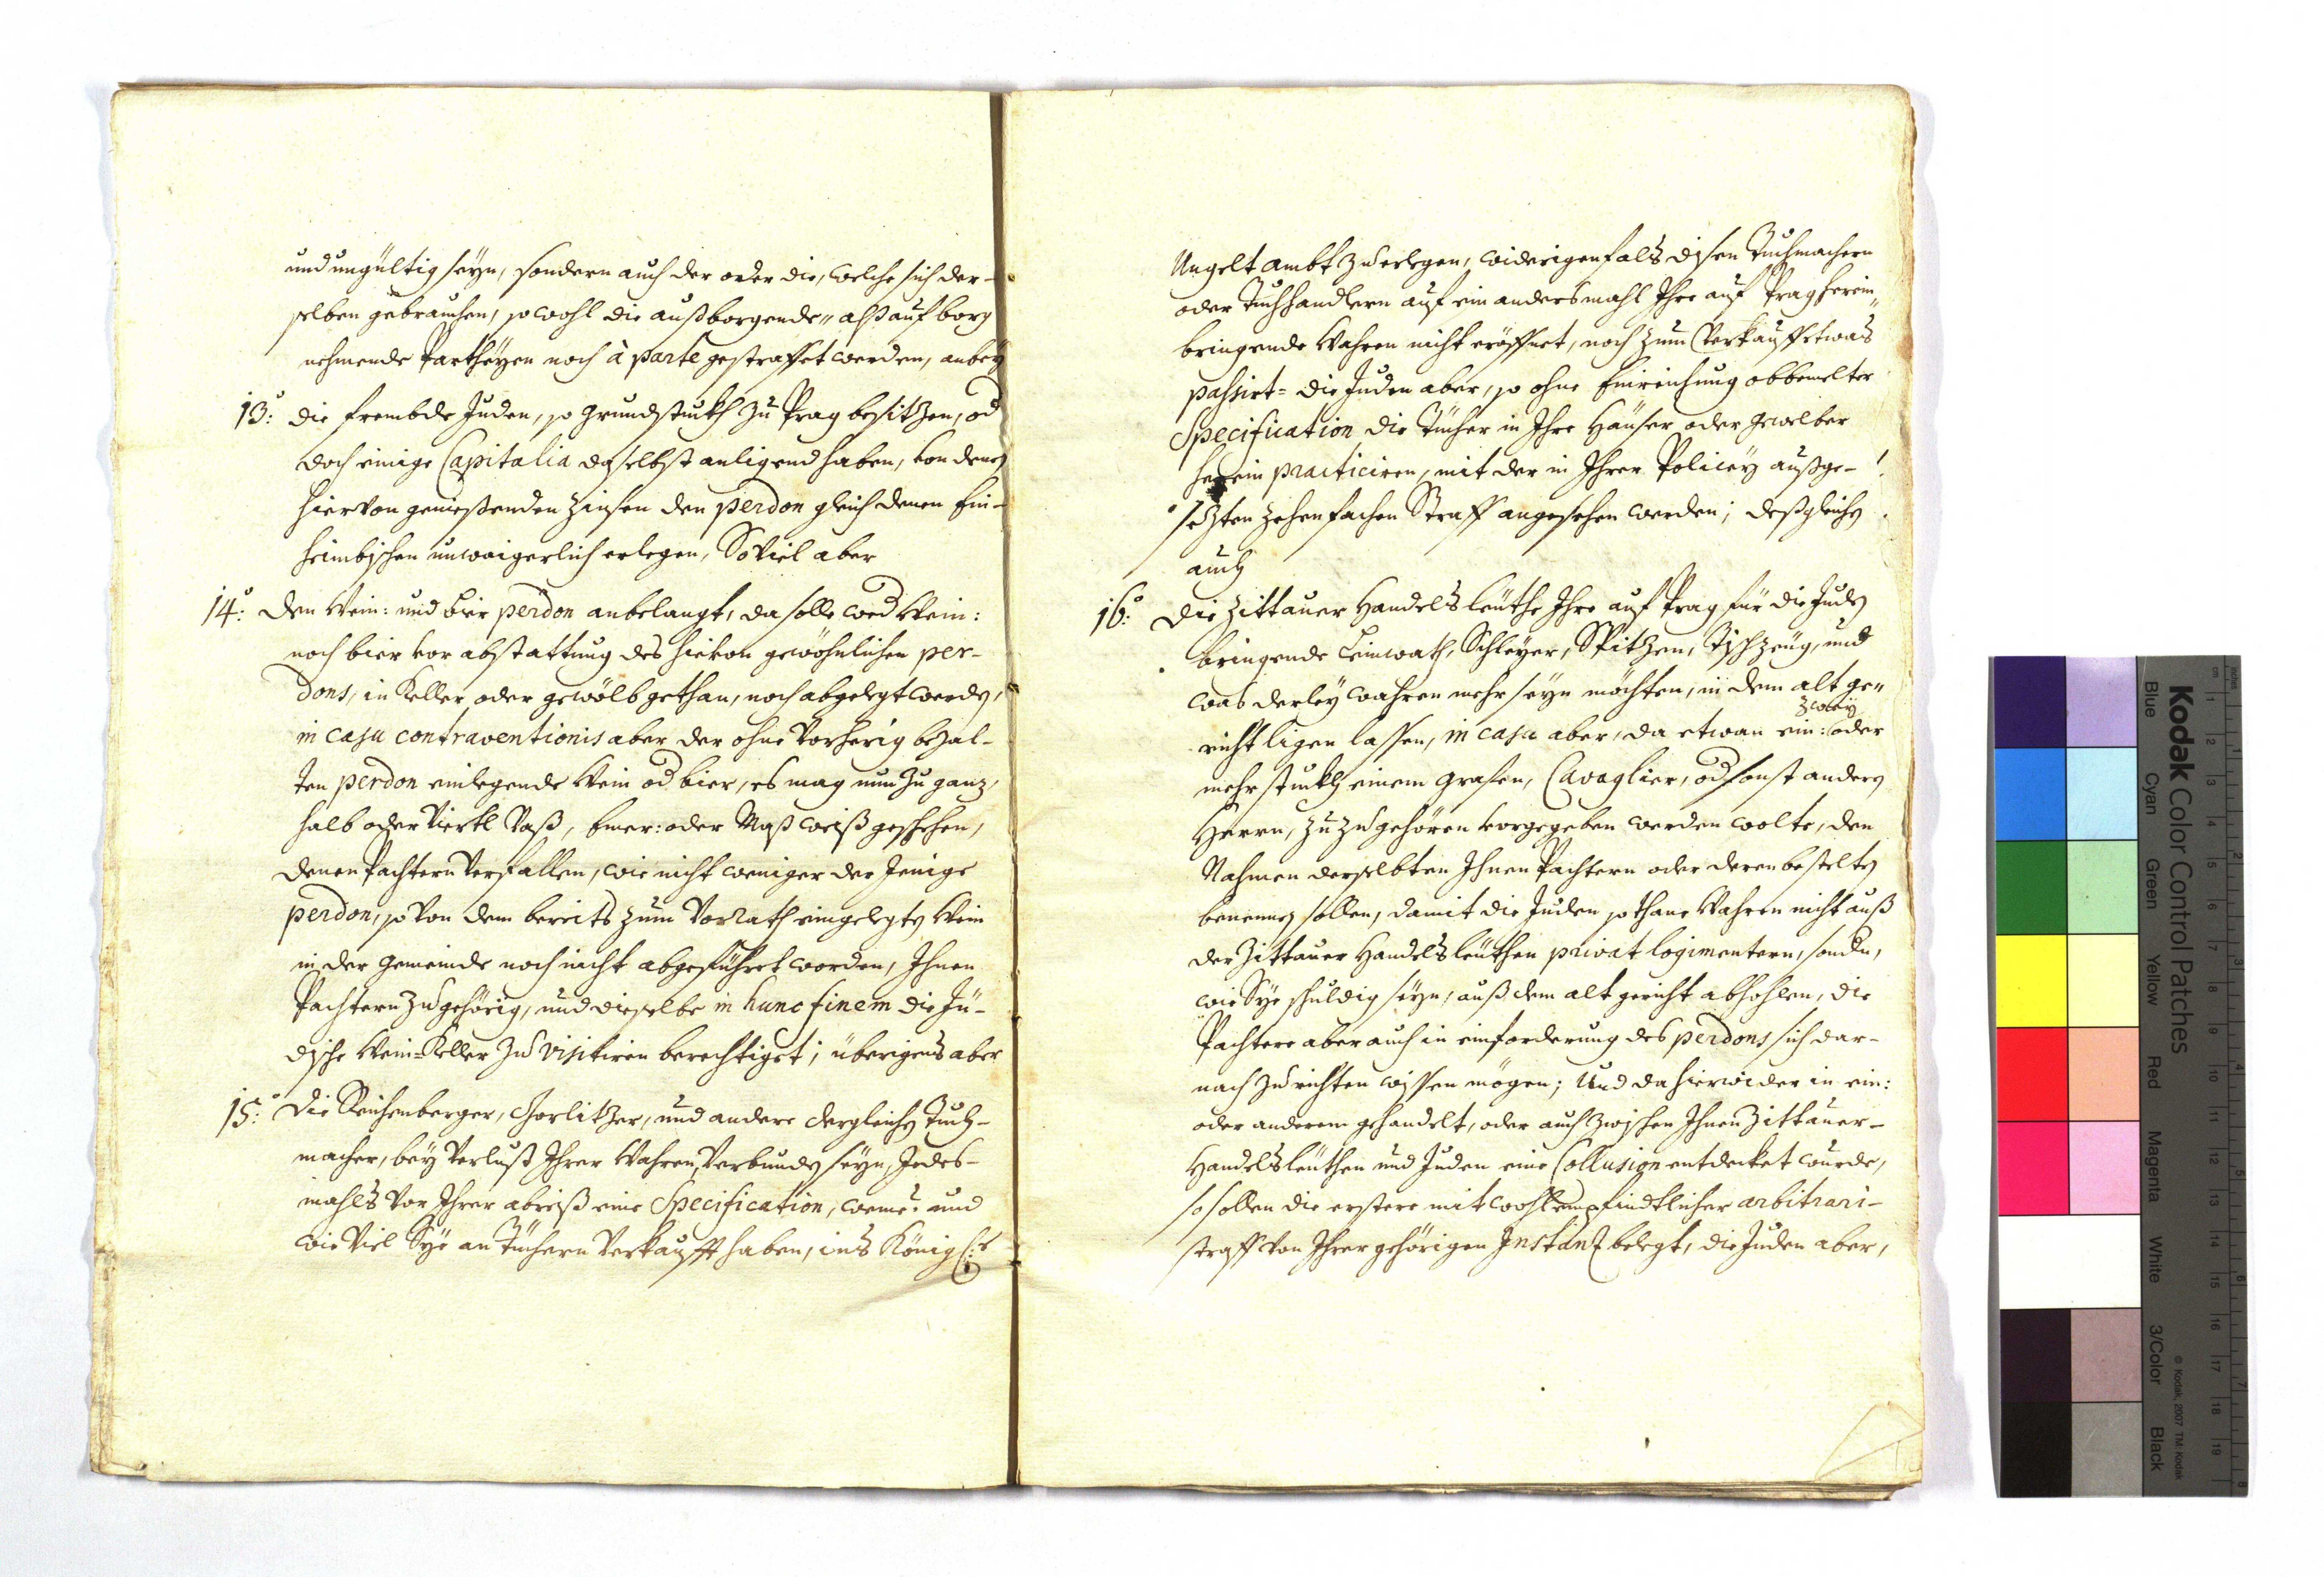 und ungültig seyn, sondern auch der oder die, welche sich der-
selben gebrauchen, so wohl die außborgende„ alß auf borg
nehmende Partheyen noch à parte gestraffet werden, anbey
13:o die frembde Juden, so grundstuckh zu Prag besitzen, od
doch einige Capitalia daselbst anligend haben, von denen
hiervon geniessenden Zinsen den perdon gleich denen Ein-
heimbischen unwaigerlich erlegen, So viel aber
14:o den Wein: und bier perdon anbelangt, da solle wed Wein:
noch bier vor abstattung des hievon gewöhnlichen per-
dons, in Keller oder gewölb gethan, noch abgelegt werden,
in casu contraventionis aber der ohne vorherig bezal-
ten perdon einlegende Wein od bier, es mag nun zu ganz,
halb oder Viertl Vaß, Emer: oder Maß weiß geschehen,
denen Pachtern verfallen, wie nicht weniger der Jenige
perdon, so von dem bereits zum Vorrath eingelegten Wein
in der gemeinde noch nicht abgeführet worden, Ihnen
Pachtern zugehörig, und dieselbe in hunc finem die Jü-
dische Wein-Keller zu visitiren berechtiget; überigens aber
15:o die Reichenberger, Gorlitzer, und andere dergleichen Tuch-
macher, bey Verlust Ihrer Wahren, Verbunden seyn, Jedes-
mahls vor Ihrer abreiß eine Specification, weme: und
wie viel Sye an Tüchern Verkaufft haben, ins König l:e
Ungelt ambt zu erlegen, widerigenfals disen Tuchmachern
oder Tuchhandlern auf ein andersmahl Ihre auf Prag herein„
bringende Wahren nicht eröffnet, noch zum Verkauff etwas
passirt- die Juden aber, so ohne Einreichung obbemelter
Specification die Tücher in Ihre Häuser oder gewelber
herein practiciren, mit der in Ihrer Policey außge-
setzten zehenfachen Straff angesehen werden; deßgleichen
auch
16:o die Zittauer Handelsleuthe Ihre auf Prag für die Juden
bringende Leinwath, Schleyer, Spitzen, Tischzeug, und
was derley wahren mehr seyn möchten, in dem alt ge„
richt ligen lassen, in casu aber, da etwan ein: zwey oder
mehr stuckh einem grafen, Cavaglier, od sonst andern
Herrn, zu zugehören vorgegeben werden wolte, den
Nahmen derselbten Ihnen Pachtern oder deren bestelten
benennen sollen, damit die Juden sothane Wahren nicht auß
der Zittauer Handelsleuthen privat logimentern, sondn,
wie Sye schuldig seyn, auß dem alt gericht abhohlen, die
Pachtere aber auch in einforderung des perdons sich dar-
nach zu richten wissen mögen; Und da hierwider in ein:
oder anderem gehandelt, oder auch zwischen Ihnen Zittauer-
Handelsleuthen und Juden eine Collusion entdecket wurde,
so sollen die erstere mit wohlempfindtlicher arbitrari-
straff von Ihrer gehörigen Instanz belegt, die Juden aber,
Kodak Color Control Patches
Blue Cyan Green Yellow Red Magenta White 3/Color Black
© Kodak, 2007 TM: Kodak
inches 1 2 3 4 5 6 7 8
cm 1 2 3 4 5 6 7 8 9 10 11 12 13 14 15 16 17 18 19